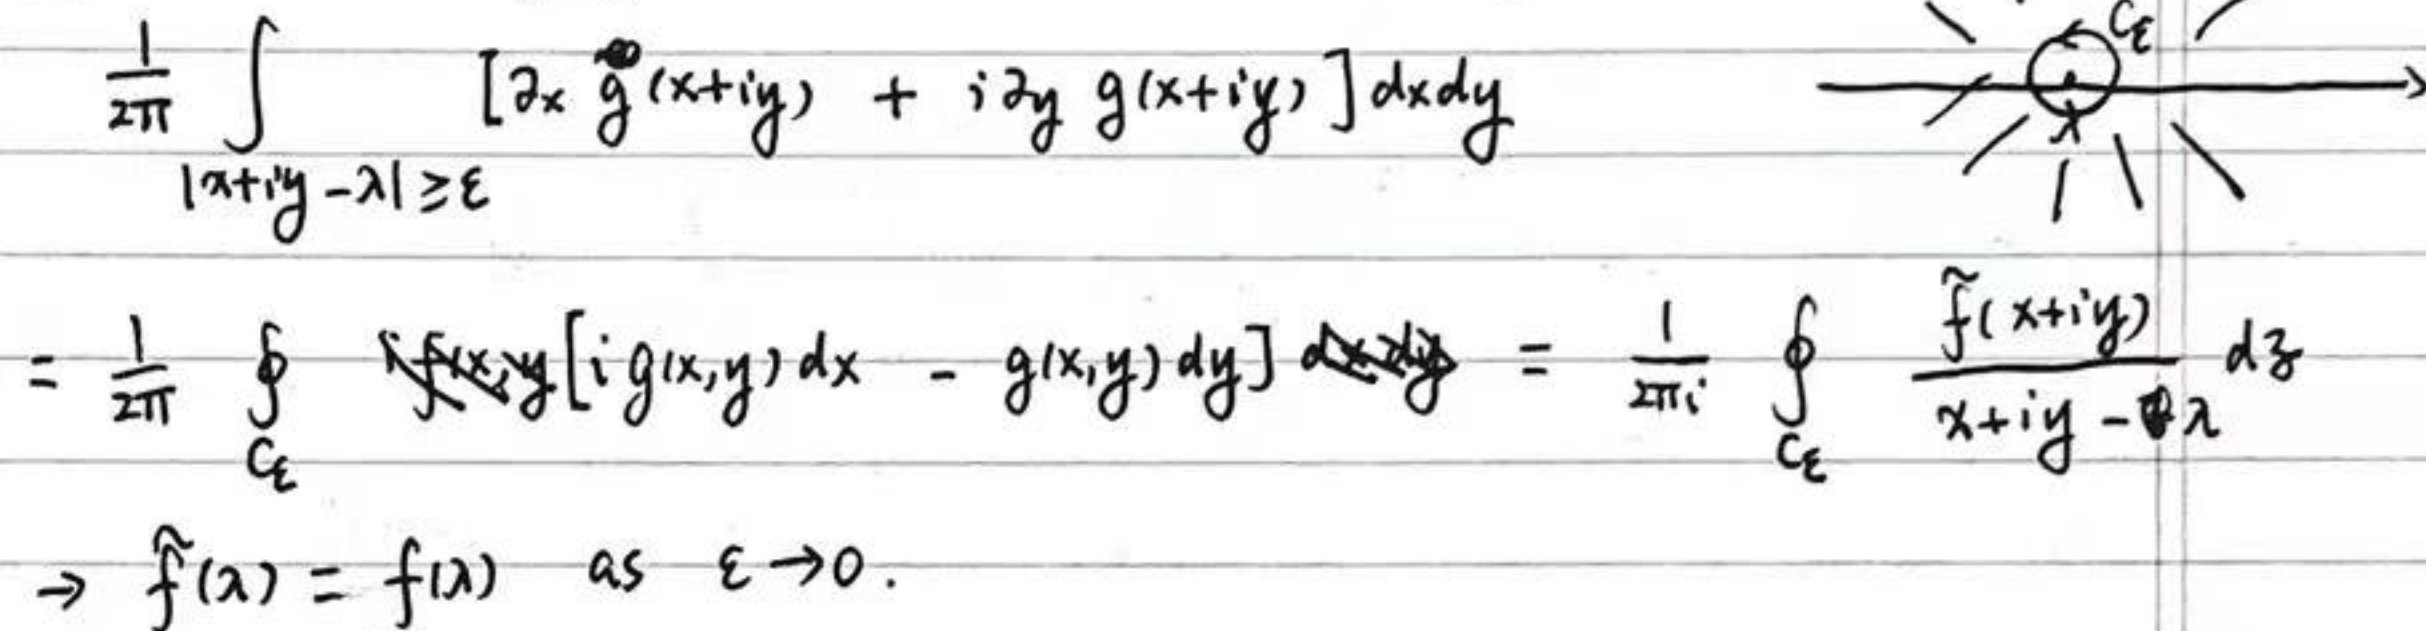 1/2π ∫_{|x+iy-λ|≥ε} [∂x g(x+iy) + i∂y g(x+iy)] dxdy
Cε
λ
= 1/2π ∮_{Cε} [i g(x,y) dx - g(x,y) dy] = 1/2πi ∮_{Cε} f̃(x+iy)/(x+iy-λ) dz
→ f̃(λ) = f(λ) as ε→0.